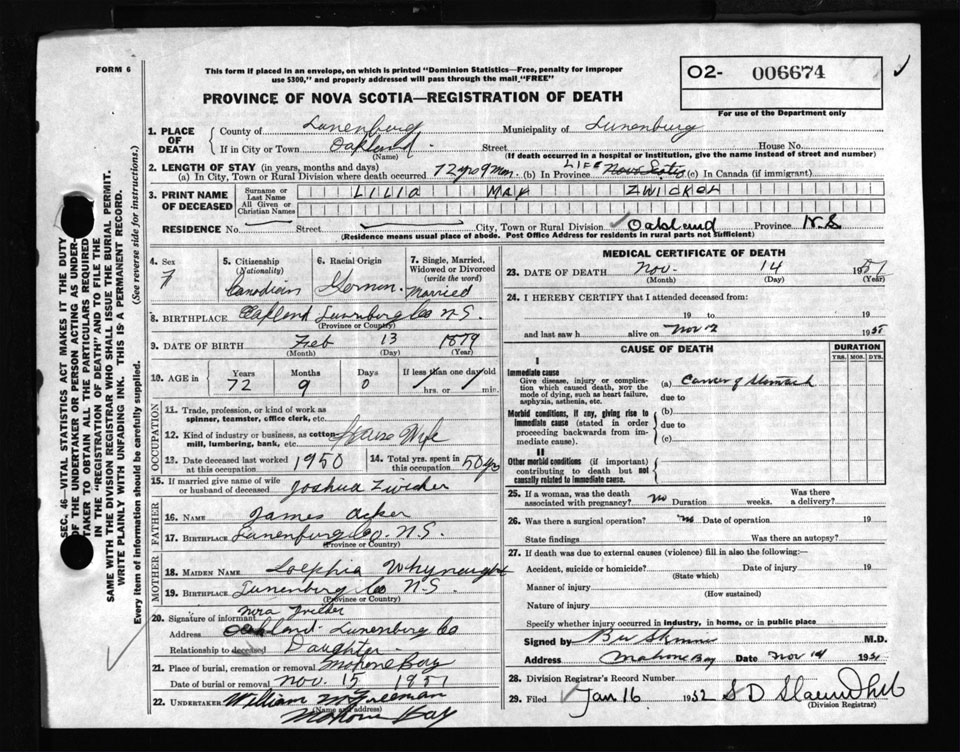 FORM 6
This form if placed in an envelope, on which is printed "Dominion Statistics—Free, penalty for improper
use $300," and properly addressed will pass through the mail "FREE"
O2- 006674
For use of the Department only
PROVINCE OF NOVA SCOTIA—REGISTRATION OF DEATH
1. PLACE OF DEATH { County of Lunenburg Municipality of Lunenburg
If in City or Town Oakland Street House No.
(Name) (If death occurred in a hospital or institution, give the name instead of street and number)
2. LENGTH OF STAY (in years, months and days)
(a) In City, Town or Rural Division where death occurred 72 yrs 9 mos. (b) In Province LIFE Nova Scotia (c) In Canada (if immigrant)
3. PRINT NAME OF DECEASED { Surname or Last Name All Given or Christian Names LILIA MAY ZWICKER
RESIDENCE No. Street City, Town or Rural Division Oakland Province N.S
(Residence means usual place of abode. Post Office Address for residents in rural parts not sufficient)
4. Sex F
5. Citizenship (Nationality) Canadian
6. Racial Origin German
7. Single, Married, Widowed or Divorced (write the word) Married
8. BIRTHPLACE Oakland Lunenburg Co N.S.
(Province or Country)
9. DATE OF BIRTH Feb 13 1879
(Month) (Day) (Year)
10. AGE in Years 72 Months 9 Days 0 If less than one day old hrs. or min.
OCCUPATION
11. Trade, profession, or kind of work as
spinner, teamster, office clerk, etc.
12. Kind of industry or business, as cotton-
mill, lumbering, bank, etc. House Wife
13. Date deceased last worked at this occupation 1950
14. Total yrs. spent in this occupation 50 yrs
15. If married give name of wife
or husband of deceased Joshua Zwicker
FATHER
16. NAME James Acker
17. BIRTHPLACE Lunenburg Co. N.S.
(Province or Country)
MOTHER
18. MAIDEN NAME Whynaught
19. BIRTHPLACE Lunenburg Co N.S.
(Province or Country)
20. Signature of informant
Address Oakland Lunenburg Co
Relationship to deceased Daughter
21. Place of burial, cremation or removal Mahone Bay
Date of burial or removal Nov. 15 1951
22. UNDERTAKER William Freeman
(Name and address)
Mahone Bay
MEDICAL CERTIFICATE OF DEATH
23. DATE OF DEATH Nov. 14 1951
(Month) (Day) (Year)
24. I HEREBY CERTIFY that I attended deceased from:
19 to 19
and last saw h alive on Nov 12 1951
CAUSE OF DEATH
DURATION
YRS. MOS. DYS.
I
Immediate cause
Give disease, injury or complication which caused death, NOT the mode of dying, such as heart failure, asphyxia, asthenia, etc.
(a) Cancer of Stomach
due to
Morbid conditions, if any, giving rise to immediate cause (stated in order proceeding backwards from immediate cause).
(b)
due to
(c)
II
Other morbid conditions (if important) contributing to death but not causally related to immediate cause.
25. If a woman, was the death associated with pregnancy? no Duration weeks. Was there a delivery?
26. Was there a surgical operation? no Date of operation 19
State findings Was there an autopsy?
27. If death was due to external causes (violence) fill in also the following:—
Accident, suicide or homicide? Date of injury 19
(State which)
Manner of injury
(How sustained)
Nature of injury
Specify whether injury occurred in industry, in home, or in public place
Signed by M.D.
Address Mahone Bay Date Nov 14 1951
28. Division Registrar's Record Number
29. Filed Jan 16 1952 S D
(Division Registrar)
SEC. 46 VITAL STATISTICS ACT MAKES IT THE DUTY
OF THE UNDERTAKER OR PERSON ACTING AS UNDER-
TAKER TO OBTAIN ALL THE PARTICULARS REQUIRED
IN THE "REGISTRATION OF DEATH" AND TO FILE THE
SAME WITH THE DIVISION REGISTRAR WHO SHALL ISSUE THE BURIAL PERMIT.
WRITE PLAINLY WITH UNFADING INK. THIS IS A PERMANENT RECORD.
Every item of information should be carefully supplied. (See reverse side for instructions.)